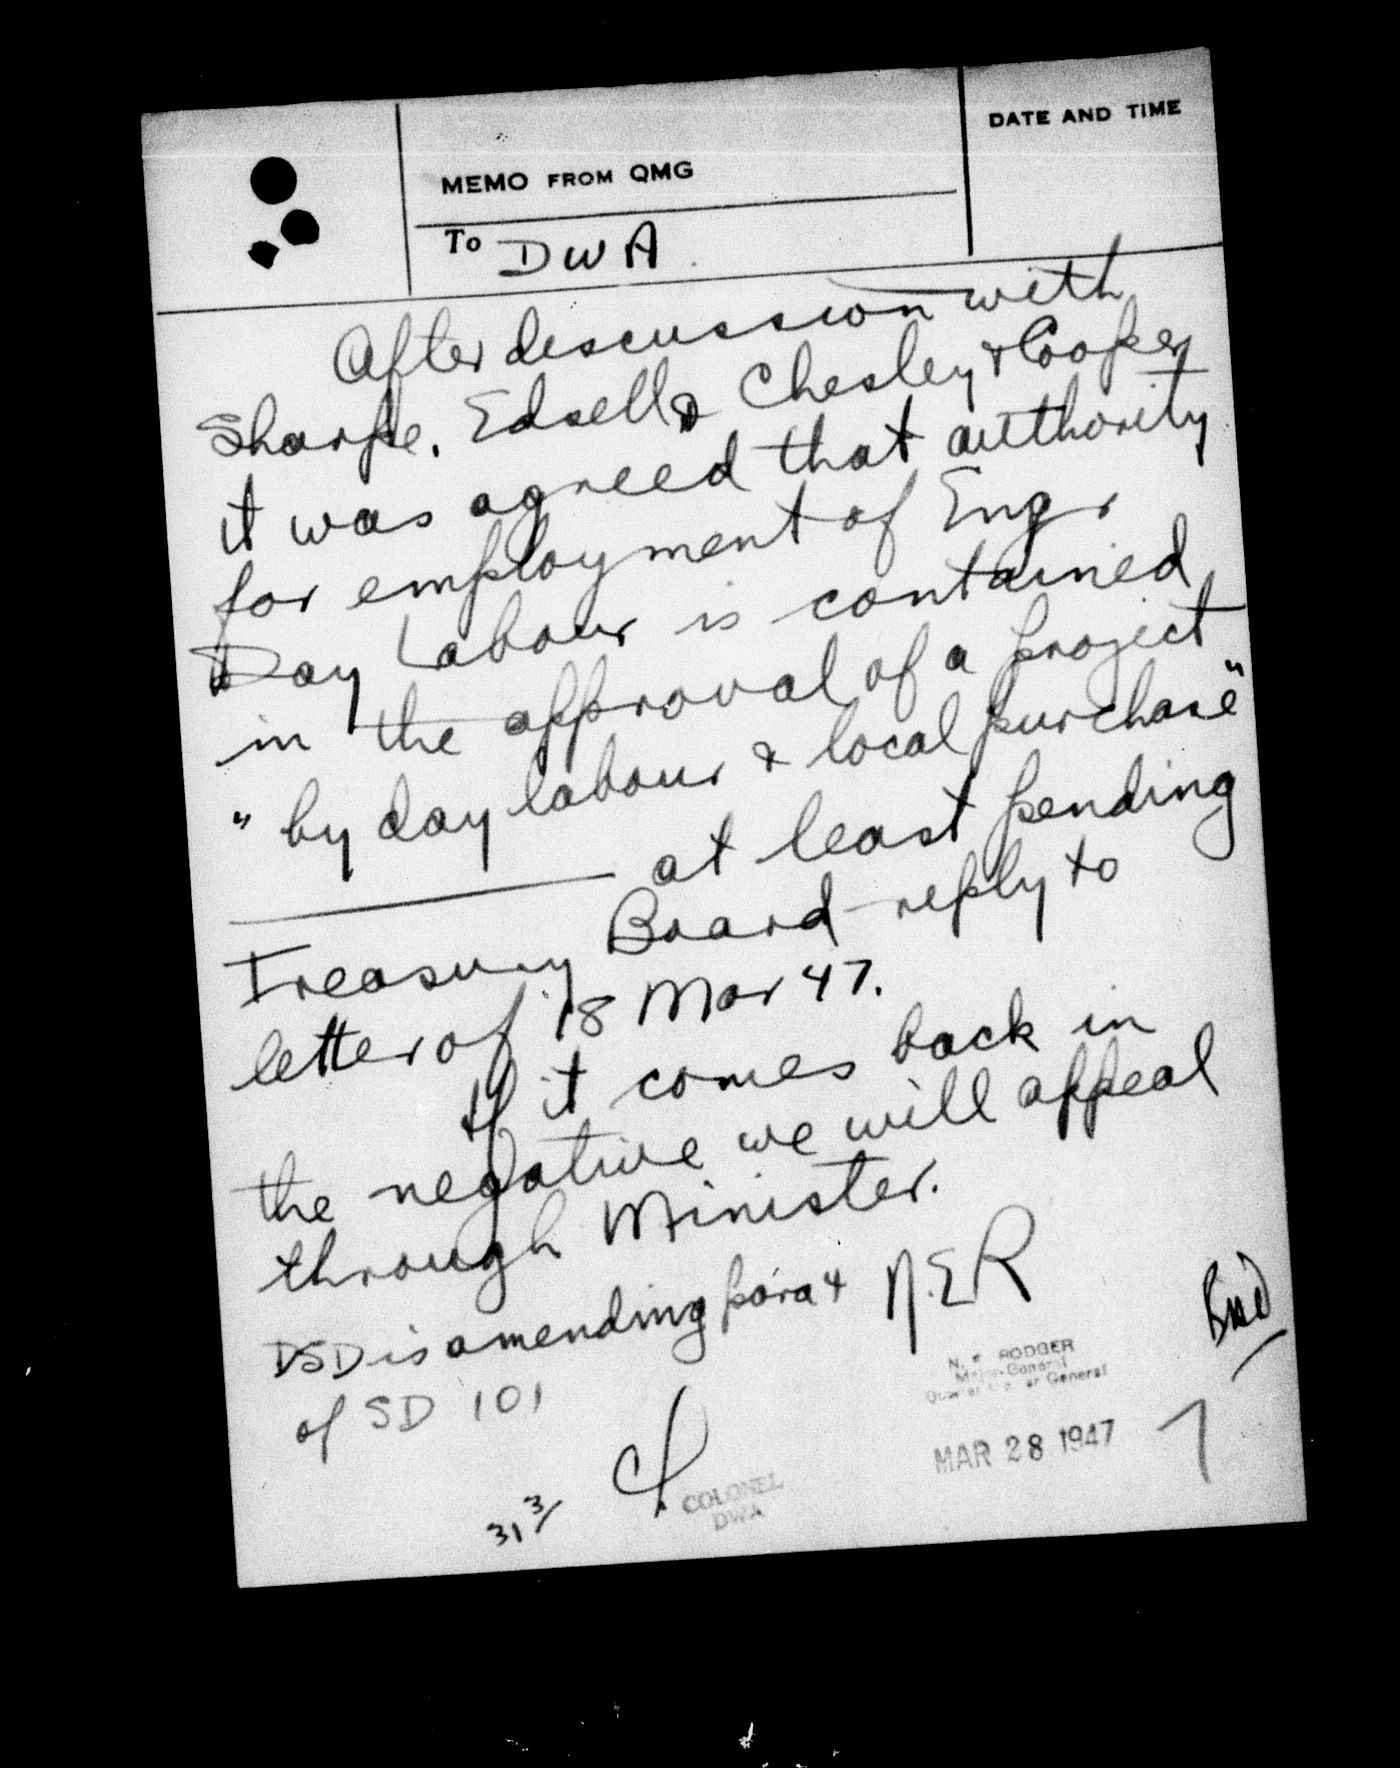 DATE AND TIME
MEMO FROM QMG
To DWA
After discussion with
Sharpe, Edsell, Chesley & Cooper
it was agreed that authority
for employment of Engr
Day Labour is contained
in the approval of a project
"by day labour & local purchase"
at least pending
Treasury Board reply to
letter of 18 Mar 47.
If it comes back in
the negative we will appeal
through Minister.
DSD is amending para 4
of SD 101
N.E.R
N. E. RODGER
Major-General
Quartermaster General
MAR 28 1947
COLONEL
DWA
31 3/